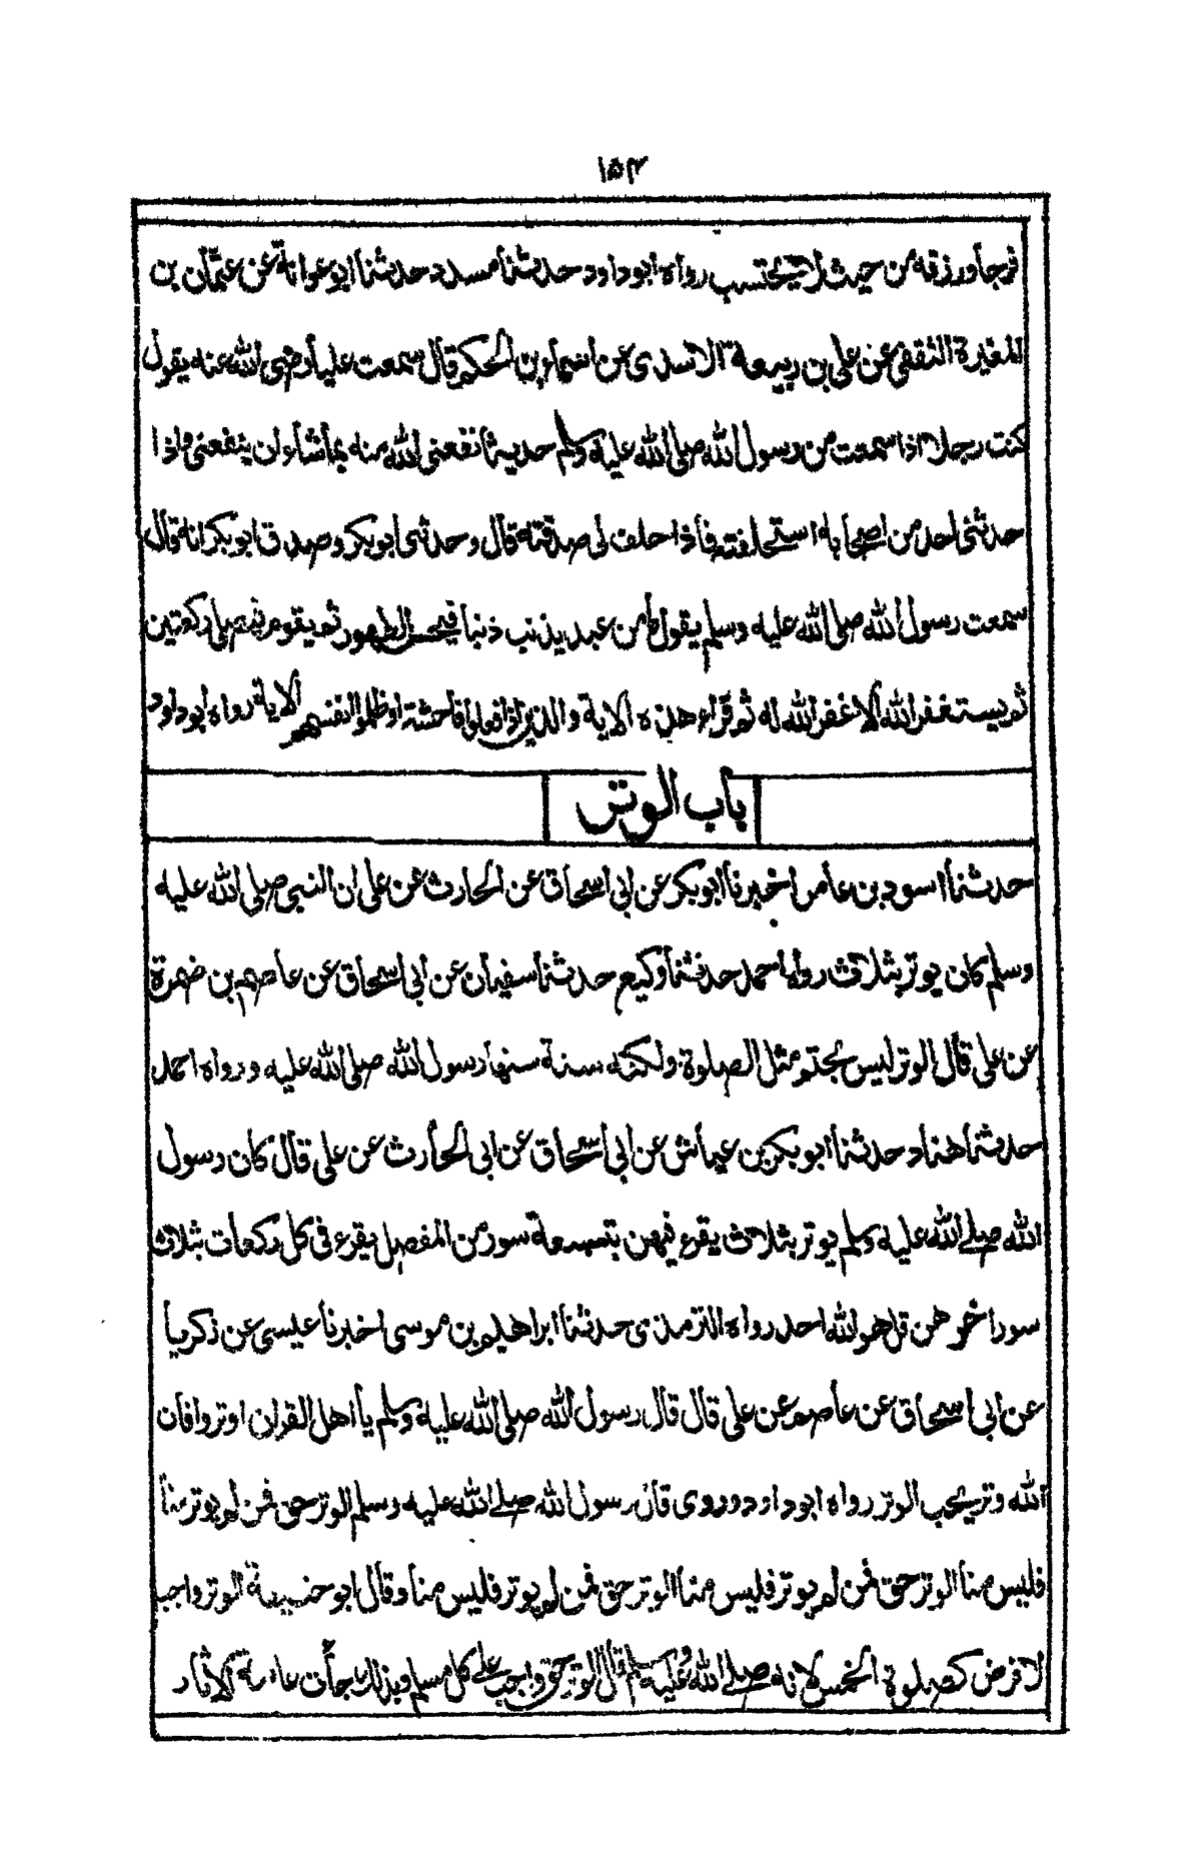 ١٥٣
فرجا ورزقه من حيث لا يحتسب رواه ابوداود حدثنا مسدد حدثنا ابو عوانة عن عثمان بن
المغيرة الثقفى عن على بن ربيعة الاسدى عن اسماء بن الحكم قال سمعت عليا رضى الله عنه يقول
كنت رجلا اذا سمعت من رسول الله صلى الله عليه وسلم حديثا نفعنى الله منه بما شاء ان ينفعنى واذا
حدثنى احد من اصحابه استحلفته فاذا حلف لى صدقته قال وحدثنى ابوبكر وصدق ابوبكر انه قال
سمعت رسول الله صلى الله عليه وسلم يقول ما من عبد يذنب ذنبا فيحسن الطهور ثم يقوم فيصلى ركعتين
ثم يستغفر الله الا غفر الله له ثم قراء هذه الاية والذين اذا فعلوا فاحشة او ظلموا انفسهم الاية رواه ابوداود
باب الوتر
حدثنا اسود بن عامر اخبرنا ابوبكر عن ابى اسحاق عن الحارث عن على ان النبى صلى الله عليه
وسلم كان يوتر بثلاث رواه احمد حدثنا وكيع حدثنا سفيان عن ابى اسحاق عن عاصم بن ضمرة
عن على قال الوتر ليس بحتم مثل الصلوة ولكنه سنة سنها رسول الله صلى الله عليه ورواه احمد
حدثنا هناد حدثنا ابوبكر بن عياش عن ابى اسحاق عن ابى الحارث عن على قال كان رسول
الله صلے الله عليه وسلم يوتر بثلاث يقرء فيهن بتسعة سور من المفصل يقرء فى كل ركعات بثلاث
سور اخرهن قل هو الله احد رواه الترمذى حدثنا ابراهيم بن موسى اخبرنا عيسى عن زكريا
عن ابى اسحاق عن عاصم عن على قال قال رسول الله صلى الله عليه وسلم يا اهل القران اوتروا فان
الله وتر يحب الوتر رواه ابوداود وروى قال رسول الله صلے الله عليه وسلم الوتر حق فمن لم يوتر منا
فليس منا الوتر حق فمن لم يوتر فليس منا الوتر حق فمن لم يوتر فليس منا وقال ابوحنيفة الوتر واجب
لا فرض كصلوة الخمس لانه صلے الله عليه وسلم قال الوتر حق واجب على كل مسلم وبذلك جات عامة الاثار